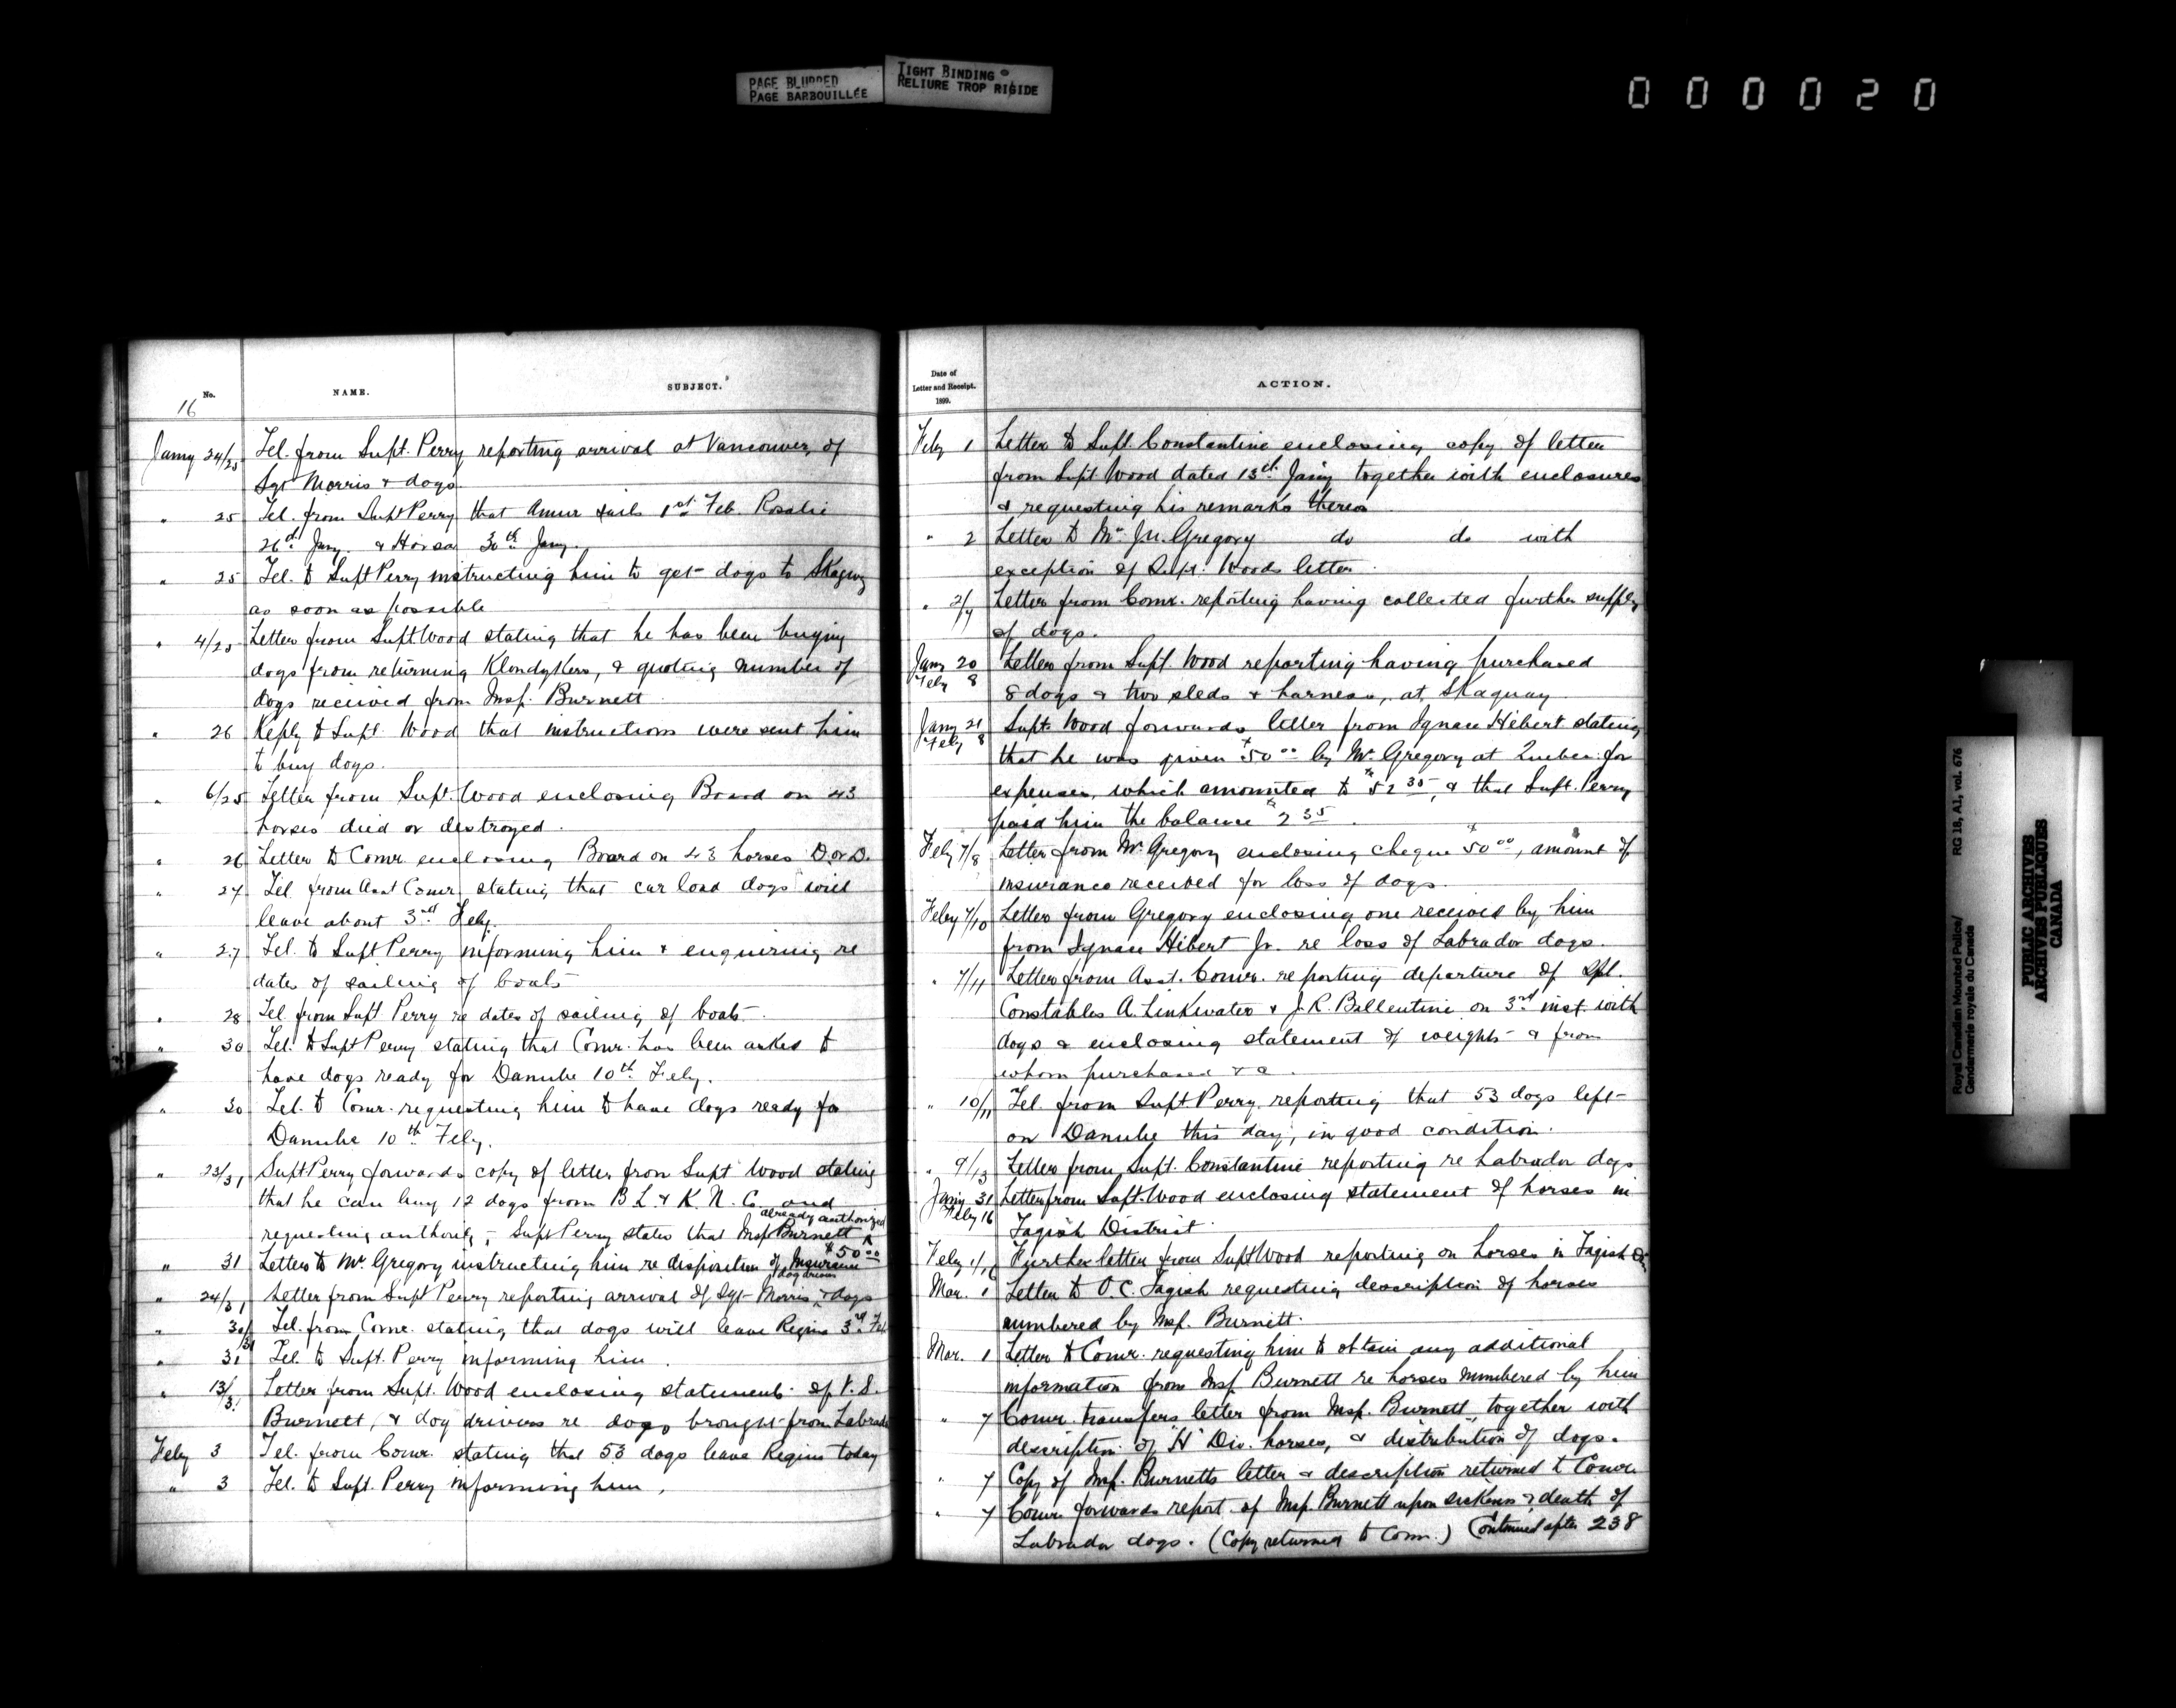 PAGE BLURRED
PAGE BARBOUILLÉE
TIGHT BINDING
RELIURE TROP RIGIDE
000020
No.
NAME.
SUBJECT.
16
Jany 24/25 Tel. from Supt. Perry reporting arrival at Vancouver of
Sgt Morris & dogs
" 25 Tel. from Supt Perry that Amur sails 1st Feb. Rosalie
26th Jany. & Horsa 30th Jany.
" 25 Tel. to Supt Perry instructing him to get dogs to Skagway
as soon as possible
" 4/25 Letter from Supt Wood stating that he has been buying
dogs from returning Klondykers, & quoting number of
dogs received from Insp. Burnett
" 26 Reply to Supt. Wood that instructions were sent him
to buy dogs.
" 6/25 Letter from Supt. Wood enclosing Board on 43
horses died or destroyed.
" 26 Letter to Comr. enclosing Board on 43 horses D. or D.
" 27 Tel. from Asst Comr. stating that car load dogs will
leave about 3rd Feby.
" 27 Tel. to Supt Perry informing him & enquiring re
dates of sailing of boats
" 28 Tel from Supt Perry re dates of sailing of boats.
" 30 Tel. to Supt Perry stating that Comr. has been asked to
have dogs ready for Danube 10th Feby.
" 30 Tel. to Comr. requesting him to have dogs ready for
Danube 10th Feby.
" 23/31 Supt Perry forwards copy of letter from Supt Wood stating
that he can buy 12 dogs from B. L. & K. N. Co. and
requesting authority,- Supt Perry states that Insp Burnett already authorized
" 31 Letter to Mr. Gregory instructing him re disposition of Insurance $50.00
" 24/31 Letter from Supt Perry reporting arrival of Sgt Morris, dog drivers & dogs
" 30/31 Tel. from Comr. stating that dogs will leave Regina 3rd Feb
" 31 Tel. to Supt. Perry informing him.
" 13/31 Letter from Supt. Wood enclosing statements of V.S.
Burnett, & dog drivers re dogs brought from Labrador
Feby 3 Tel. from Comr. stating that 53 dogs leave Regina today
" 3 Tel. to Supt. Perry informing him.
Date of
Letter and Receipt.
1899.
ACTION.
Feby 1 Letter to Supt. Constantine enclosing copy of letter
from Supt Wood dated 13th Jany together with enclosures
& requesting his remarks thereon
" 2 Letter to Mr. Jn. Gregory do do with
exception of Supt. Woods letter.
" 2/7 Letter from Comr. reporting having collected further supply
of dogs.
Jany 20 Feby 8 Letter from Supt. Wood reporting having purchased
8 dogs & two sleds & harness, at Skaguay
Jany 21 Feby 8 Supt Wood forwards letter from Ignace Hébert stating
that he was given $50.00 by Mr. Gregory at Quebec for
expenses, which amounted to $52.35, & that Supt. Perry
paid him the balance $2.35.
Feby 7/8 Letter from Mr. Gregory enclosing cheque $50.00, amount of
insurance received for loss of dogs.
Feby 7/10 Letter from Gregory enclosing one received by him
from Ignace Hibert Jr. re loss of Labrador dogs.
" 7/11 Letter from Asst. Comr. reporting departure of Spl.
Constables A. Linkwater & J. R. Ballentine on 3rd inst. with
dogs & enclosing statement of weights & from
whom purchased &c.
" 10/11 Tel. from Supt Perry reporting that 53 dogs left
on Danube this day, in good condition.
" 9/13 Letter from Supt. Constantine reporting re Labrador dogs
Jany 31 Feby 16 Letter from Supt. Wood enclosing statement of horses in
Tagish District.
Feby 1/16 Further letter from Supt Wood reporting on horses in Tagish Dis.
Mar. 1 Letter to O.C. Tagish requesting description of horses
numbered by Insp. Burnett.
Mar. 1 Letter to Comr. requesting him to obtain any additional
information from Insp Burnett re horses numbered by him
" 7 Comr. transfers letter from Insp. Burnett together with
description of "H" Div. horses, & distribution of dogs.
" 7 Copy of Insp. Burnetts letter & description returned to Comr.
" 7 Comr. forwards report of Insp. Burnett upon sickness & death of
Labrador dogs. (Copy returned to Comr.) Continued after 238
Royal Canadian Mounted Police/
Gendarmerie royale du Canada
RG 18, A1, vol. 676
PUBLIC ARCHIVES
ARCHIVES PUBLIQUES
CANADA